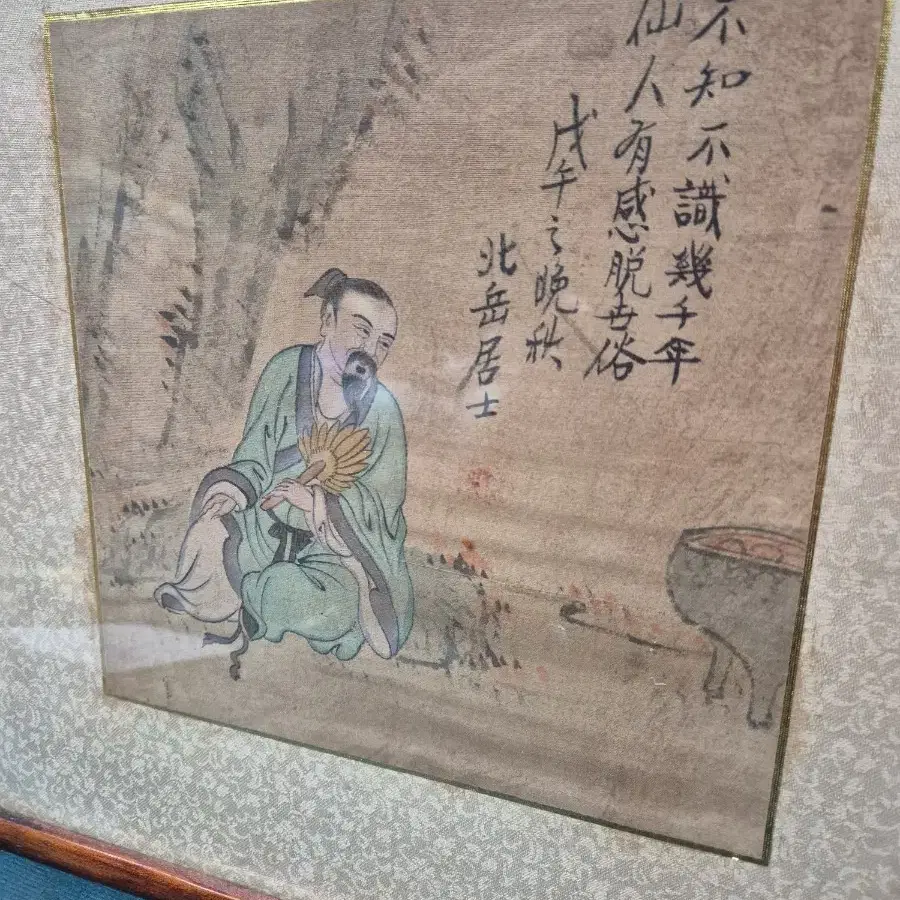 不知不識幾千年
仙人有感脱世俗
戊午之晩秋
北岳居士